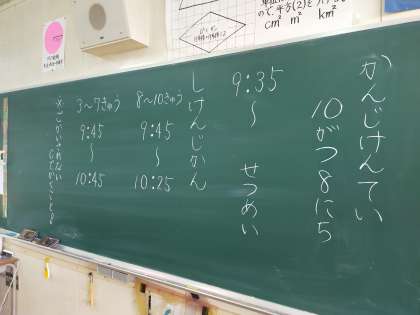 かんじけんてい
10がつ8にち
9:35
〜 せつめい
しけんじかん
8〜10きゅう
9:45
〜
10:25
3〜7きゅう
9:45
〜
10:45
cm² m² km²